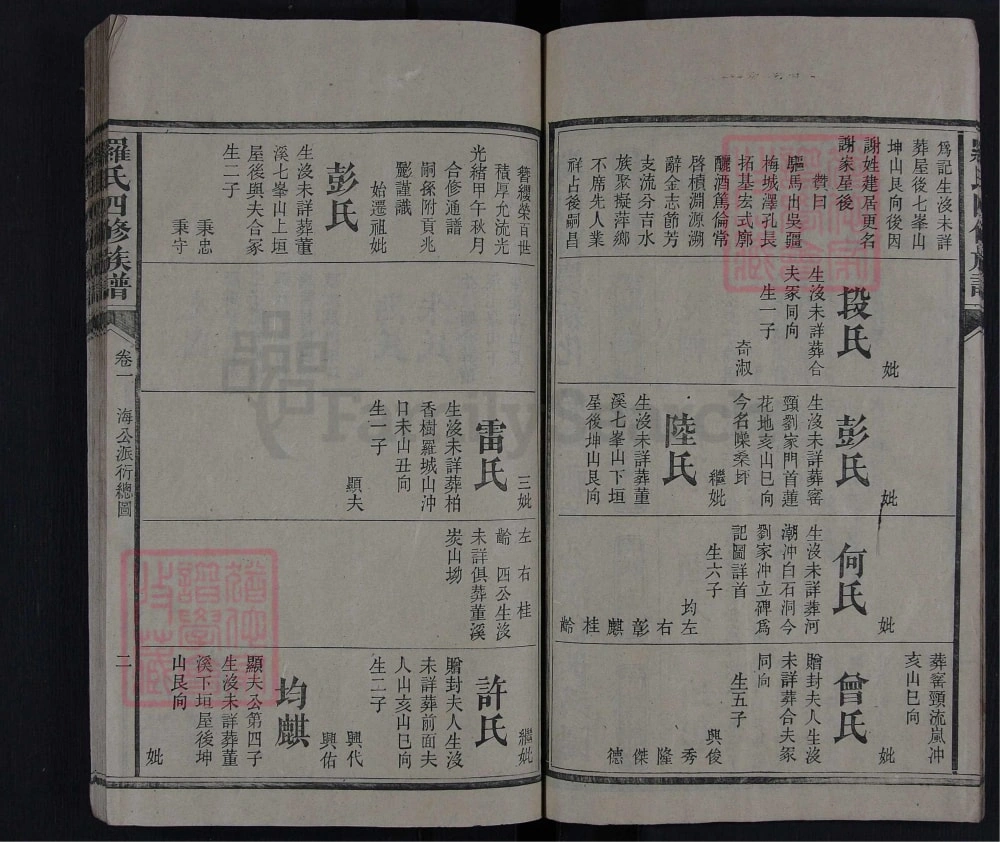 羅氏四修族譜
爲記生沒未詳
葬屋後七峯山
坤山艮向後因
謝姓建居更名
謝家屋後
贊曰
驅馬出吳疆
梅城澤孔長
拓基宏式廓
釃酒篤倫常
啓楨淵源溯
辭金志節芳
支流分吉水
族聚擬萍鄉
不席先人業
祥占後嗣昌
妣
段氏
生沒未詳葬合
夫冢同向
生一子
奇淑
妣
彭氏
生沒未詳葬窰
頸劉家門首蓮
花地亥山巳向
今名㘔桑坏
繼妣
陸氏
生沒未詳葬董
溪七峯山下垣
屋後坤山艮向
妣
何氏
生沒未詳葬河
潮冲白石洞今
劉家冲立碑爲
記圖詳首
生六子
均左
右
彰
麒
桂
齡
葬窰頸流嵐冲
亥山巳向
妣
曾氏
贈封夫人生沒
未詳葬合夫冢
同向
生五子
興俊
秀
隆
傑
德
簪纓榮百世
積厚允流光
光緒甲午秋月
合修通譜
嗣孫附貢兆
謹識
始遷祖妣
彭氏
生沒未詳葬董
溪七峯山上垣
屋後與夫合冢
生二子
秉忠
秉守
三妣
雷氏
生沒未詳葬柏
香樹羅城山沖
日未山丑向
生一子
顯夫
左右桂
齡四公生沒
未詳俱葬董溪
炭山坳
繼妣
許氏
贈封夫人生沒
未詳葬前面夫
人山亥山巳向
生二子
興代
興佑
均麒
顯夫公第四子
生沒未詳葬董
溪下垣屋後坤
山艮向
妣
羅氏四修族譜
卷一
海公派衍總圖
二
FamilySearch